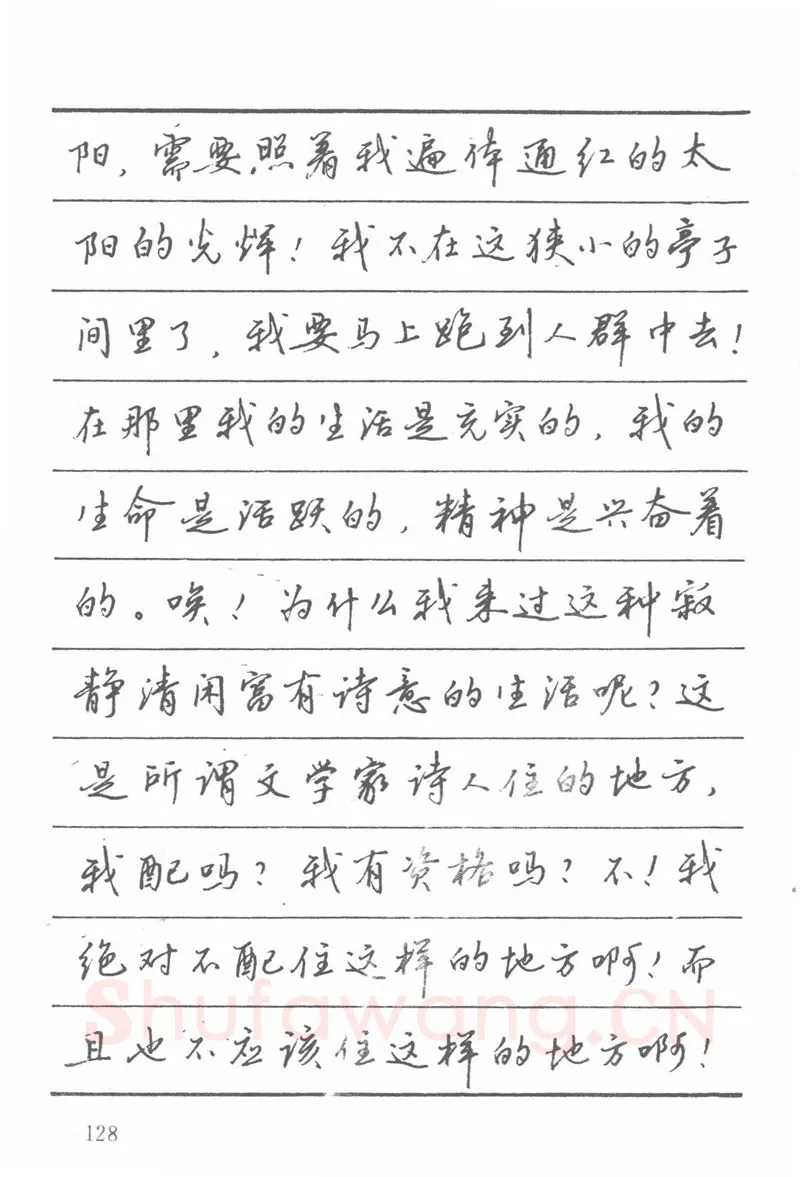 阳，需要照着我遍体通红的太
阳的光辉！我不在这狭小的亭子
间里了，我要马上跑到人群中去！
在那里我的生活是充实的，我的
生命是活跃的，精神是兴奋着
的。唉！为什么我来过这种寂
静清闲富有诗意的生活呢？这
是所谓文学家诗人住的地方，
我配吗？我有资格吗？不！我
绝对不配住这样的地方啊！而
Shufawang.CN
且也不应该住这样的地方啊！
128